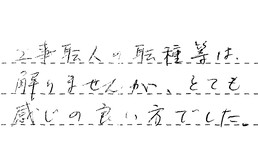 工事転人の転種等は、
解りませんがい、とても
感じの良い方でした。